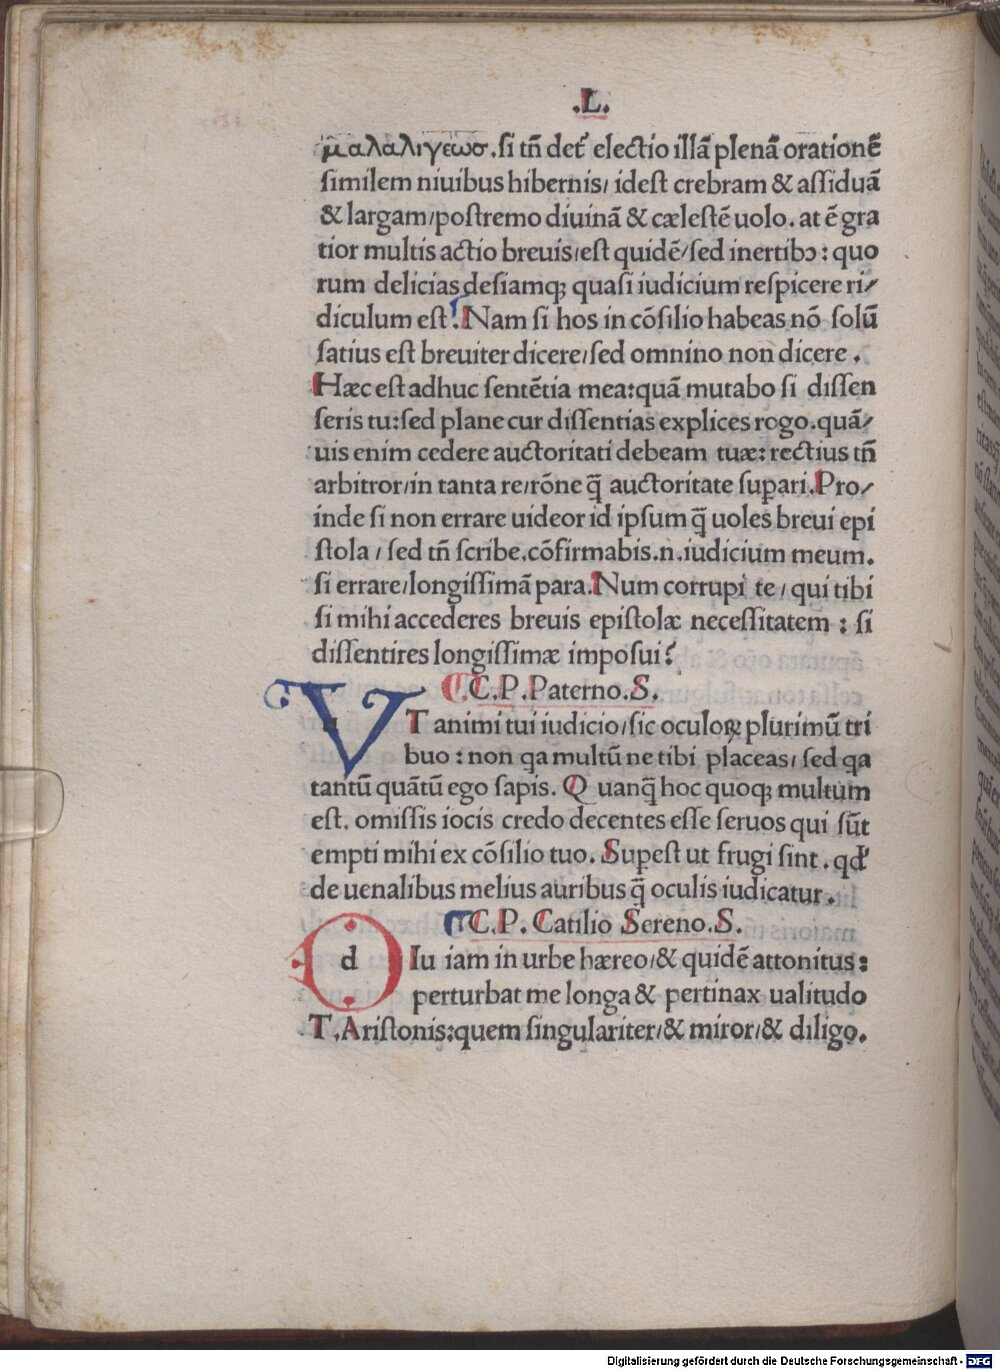 .L.
μαλαλιγεωσ. si tñ det᷑ electio illā plenā orationē
similem niuibus hibernis/ idest crebram & assiduā
& largam/postremo diuinā & cælestē uolo. at ē gra
tior multis actio breuis/est quidē/sed inertibꝰ: quo
rum delicias desiamqꝫ quasi iudicium respicere ri/
diculum est. Nam si hos in cōsilio habeas nō solū
satius est breuiter dicere/sed omnino non dicere .
Hæc est adhuc sentētia mea:quā mutabo si dissen
seris tu:sed plane cur dissentias explices rogo.quā/
uis enim cedere auctoritati debeam tuæ: rectius tñ
arbitror/in tanta re/rōne q̄ auctoritate supari.Pro/
inde si non errare uideor id ipsum q̄ uoles breui epi
stola / sed tñ scribe.cōfirmabis.n.iudicium meum.
si errare/longissimā para.Num corrupi te / qui tibi
si mihi accederes breuis epistolæ necessitatem : si
dissentires longissimæ imposui?
.C.P.Paterno.S.
V u T animi tui iudicio/sic oculoꝝ plurimū tri
buo : non qa multū ne tibi placeas/ sed qa
tantū quātū ego sapis. Q uanq̄ hoc quoqꝫ multum
est. omissis iocis credo decentes esse seruos qui sūt
empti mihi ex cōsilio tuo. Supest ut frugi sint . qđ
de uenalibus melius auribus q̄ oculis iudicatur .
C.P. Catilio Sereno.S.
D d Iu iam in urbe hæreo/& quidē attonitus:
perturbat me longa & pertinax ualitudo
T.Aristonis:quem singulariter/& miror/& diligo.
Digitalisierung gefördert durch die Deutsche Forschungsgemeinschaft - DFG